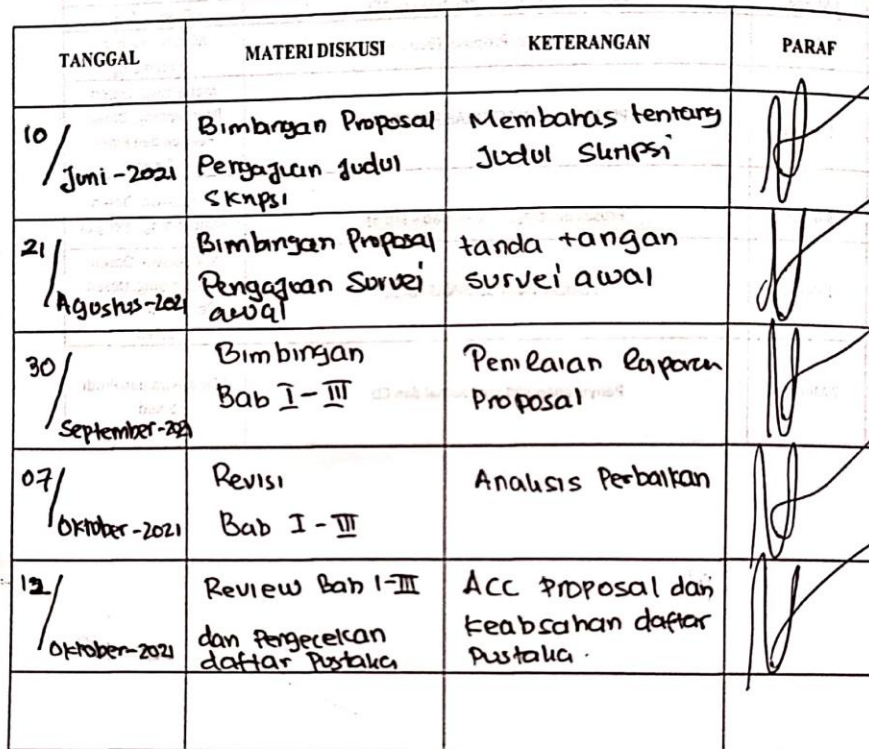 TANGGAL MATERI DISKUSI KETERANGAN PARAF
10/ Juni - 2021
Bimbingan Proposal
Pengajuan Judul
Skripsi
Membahas tentang
Judul Skripsi
21/ Agustus - 2021
Bimbingan Proposal
Pengajuan Survei
awal
tanda tangan
survei awal
30/ September - 2021
Bimbingan
Bab I - III
Penilaian laporan
Proposal
07/ Oktober - 2021
Revisi
Bab I - III
Analisis Perbaikan
12/ Oktober - 2021
Review Bab I - III
dan Pengecekan
daftar Pustaka
ACC Proposal dan
keabsahan daftar
Pustaka.